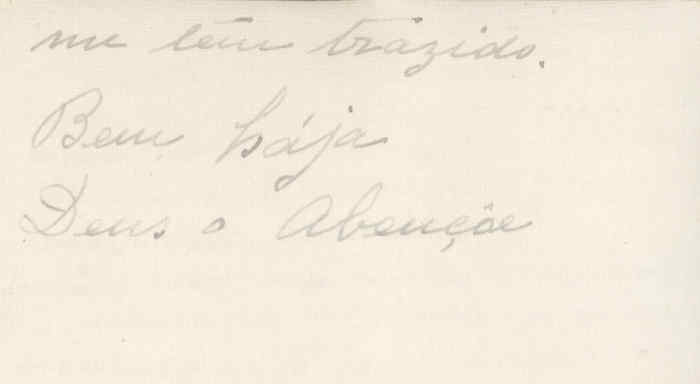 me têm trázido.
Bem hája
Deus o Abençôe